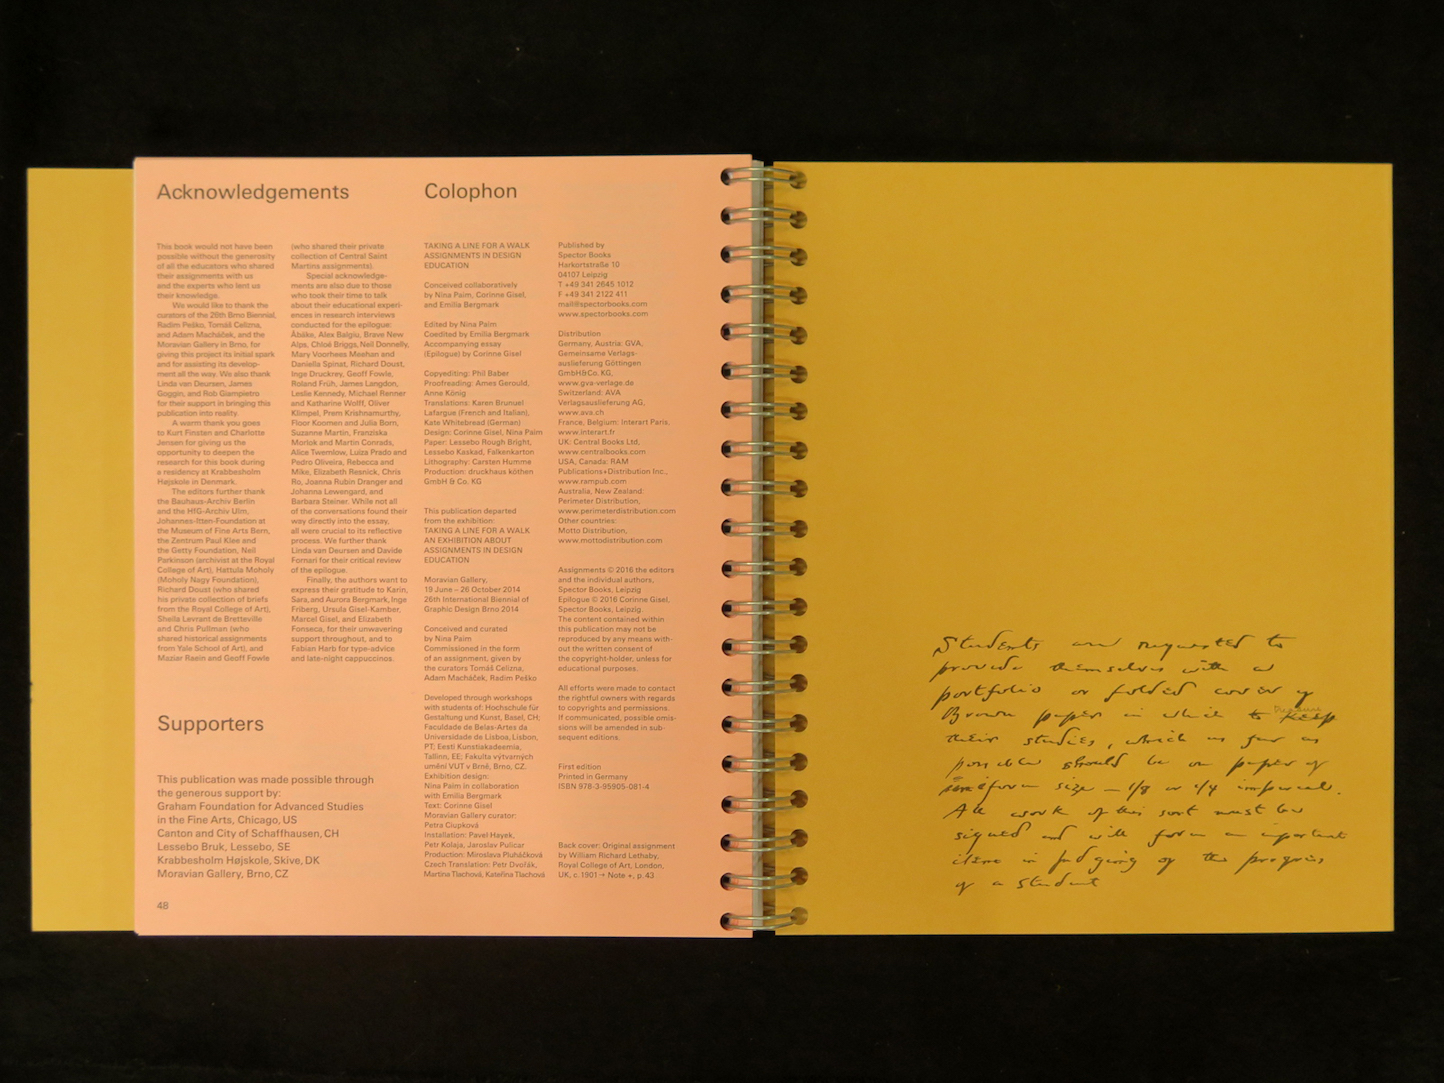 Acknowledgements
This book would not have been
possible without the generosity
of all the educators who shared
their assignments with us
and the experts who lent us
their knowledge.
We would like to thank the
curators of the 26th Brno Biennial,
Radim Peško, Tomáš Celizna,
and Adam Macháček, and the
Moravian Gallery in Brno, for
giving this project its initial spark
and for assisting its develop-
ment all the way. We also thank
Linda van Deursen, James
Goggin, and Rob Giampietro
for their support in bringing this
publication into reality.
A warm thank you goes
to Kurt Finsten and Charlotte
Jensen for giving us the
opportunity to deepen the
research for this book during
a residency at Krabbesholm
Højskole in Denmark.
The editors further thank
the Bauhaus-Archiv Berlin
and the HfG-Archiv Ulm,
Johannes-Itten-Foundation at
the Museum of Fine Arts Bern,
the Zentrum Paul Klee and
the Getty Foundation, Neil
Parkinson (archivist at the Royal
College of Art), Hattula Moholy
(Moholy Nagy Foundation),
Richard Doust (who shared
his private collection of briefs
from the Royal College of Art),
Sheila Levrant de Bretteville
and Chris Pullman (who
shared historical assignments
from Yale School of Art), and
Maziar Raein and Geoff Fowle
(who shared their private
collection of Central Saint
Martins assignments).
Special acknowledge-
ments are also due to those
who took their time to talk
about their educational experi-
ences in research interviews
conducted for the epilogue:
Åbäke, Alex Balgiu, Brave New
Alps, Chloé Briggs, Neil Donnelly,
Mary Voorhees Meehan and
Daniella Spinat, Richard Doust,
Inge Druckrey, Geoff Fowle,
Roland Früh, James Langdon,
Leslie Kennedy, Michael Renner
and Katharine Wolff, Oliver
Klimpel, Prem Krishnamurthy,
Floor Koomen and Julia Born,
Suzanne Martin, Franziska
Morlok and Martin Conrads,
Alice Twemlow, Luiza Prado and
Pedro Oliveira, Rebecca and
Mike, Elizabeth Resnick, Chris
Ro, Joanna Rubin Dranger and
Johanna Lewengard, and
Barbara Steiner. While not all
of the conversations found their
way directly into the essay,
all were crucial to its reflective
process. We further thank
Linda van Deursen and Davide
Fornari for their critical review
of the epilogue.
Finally, the authors want to
express their gratitude to Karin,
Sara, and Aurora Bergmark, Inge
Friberg, Ursula Gisel-Kamber,
Marcel Gisel, and Elizabeth
Fonseca, for their unwavering
support throughout, and to
Fabian Harb for type-advice
and late-night cappuccinos.
Supporters
This publication was made possible through
the generous support by:
Graham Foundation for Advanced Studies
in the Fine Arts, Chicago, US
Canton and City of Schaffhausen, CH
Lessebo Bruk, Lessebo, SE
Krabbesholm Højskole, Skive, DK
Moravian Gallery, Brno, CZ
48
Colophon
TAKING A LINE FOR A WALK
ASSIGNMENTS IN DESIGN
EDUCATION
Conceived collaboratively
by Nina Paim, Corinne Gisel,
and Emilia Bergmark
Edited by Nina Paim
Coedited by Emilia Bergmark
Accompanying essay
(Epilogue) by Corinne Gisel
Copyediting: Phil Baber
Proofreading: Ames Gerould,
Anne König
Translations: Karen Brunuel
Lafargue (French and Italian),
Kate Whitebread (German)
Design: Corinne Gisel, Nina Paim
Paper: Lessebo Rough Bright,
Lessebo Kaskad, Falkenkarton
Lithography: Carsten Humme
Production: druckhaus köthen
GmbH & Co. KG
This publication departed
from the exhibition:
TAKING A LINE FOR A WALK
AN EXHIBITION ABOUT
ASSIGNMENTS IN DESIGN
EDUCATION
Moravian Gallery,
19 June – 26 October 2014
26th International Biennial of
Graphic Design Brno 2014
Conceived and curated
by Nina Paim
Commissioned in the form
of an assignment, given by
the curators Tomáš Celizna,
Adam Macháček, Radim Peško
Developed through workshops
with students of: Hochschule für
Gestaltung und Kunst, Basel, CH;
Faculdade de Belas-Artes da
Universidade de Lisboa, Lisbon,
PT; Eesti Kunstiakadeemia,
Tallinn, EE; Fakulta výtvarných
umění VUT v Brně, Brno, CZ.
Exhibition design:
Nina Paim in collaboration
with Emilia Bergmark
Text: Corinne Gisel
Moravian Gallery curator:
Petra Ciupková
Installation: Pavel Hayek,
Petr Kolaja, Jaroslav Pulicar
Production: Miroslava Pluháčková
Czech Translation: Petr Dvořák,
Martina Tlachová, Kateřina Tlachová
Published by
Spector Books
Harkortstraße 10
04107 Leipzig
T +49 341 2645 1012
F +49 341 2122 411
mail@spectorbooks.com
www.spectorbooks.com
Distribution
Germany, Austria: GVA,
Gemeinsame Verlags-
auslieferung Göttingen
GmbH&Co. KG,
www.gva-verlage.de
Switzerland: AVA
Verlagsauslieferung AG,
www.ava.ch
France, Belgium: Interart Paris,
www.interart.fr
UK: Central Books Ltd,
www.centralbooks.com
USA, Canada: RAM
Publications+Distribution Inc.,
www.rampub.com
Australia, New Zealand:
Perimeter Distribution,
www.perimeterdistribution.com
Other countries:
Motto Distribution,
www.mottodistribution.com
Assignments © 2016 the editors
and the individual authors,
Spector Books, Leipzig
Epilogue © 2016 Corinne Gisel,
Spector Books, Leipzig
The content contained within
this publication may not be
reproduced by any means with-
out the written consent of
the copyright-holder, unless for
educational purposes.
All efforts were made to contact
the rightful owners with regards
to copyrights and permissions.
If communicated, possible omis-
sions will be amended in sub-
sequent editions.
First edition
Printed in Germany
ISBN 978-3-95905-081-4
Back cover: Original assignment
by William Richard Lethaby,
Royal College of Art, London,
UK, c. 1901 → Note +, p. 43
Students are requested to
provide themselves with a
portfolio or folded cover of
Brown paper in which to keep
their studies, which as far as
possible should be on paper of
uniform size – 1/8 or 1/4 imperial.
All work of this sort must be
signed and will form an important
item in judging of the progress
of a student